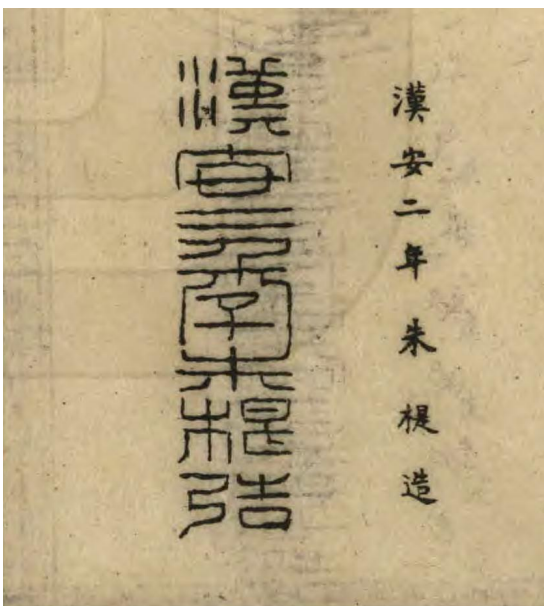 漢安二年朱㮛造
漢安二年朱㮛造